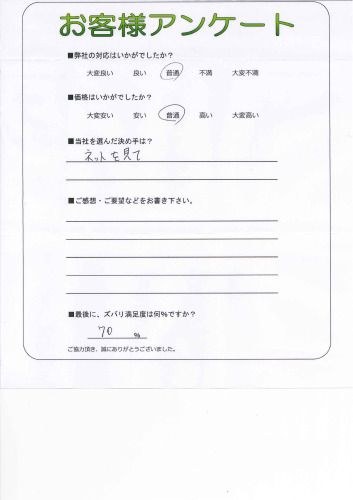 お客様アンケート
■弊社の対応はいかがでしたか?
大変良い 良い 普通 不満 大変不満
■価格はいかがでしたか?
大変安い 安い 普通 高い 大変高い
■当社を選んだ決め手は?
ネットを見て
■ご感想・ご要望などをお書き下さい。
■最後に、ズバリ満足度は何%ですか?
70 %
ご協力頂き、誠にありがとうございました。